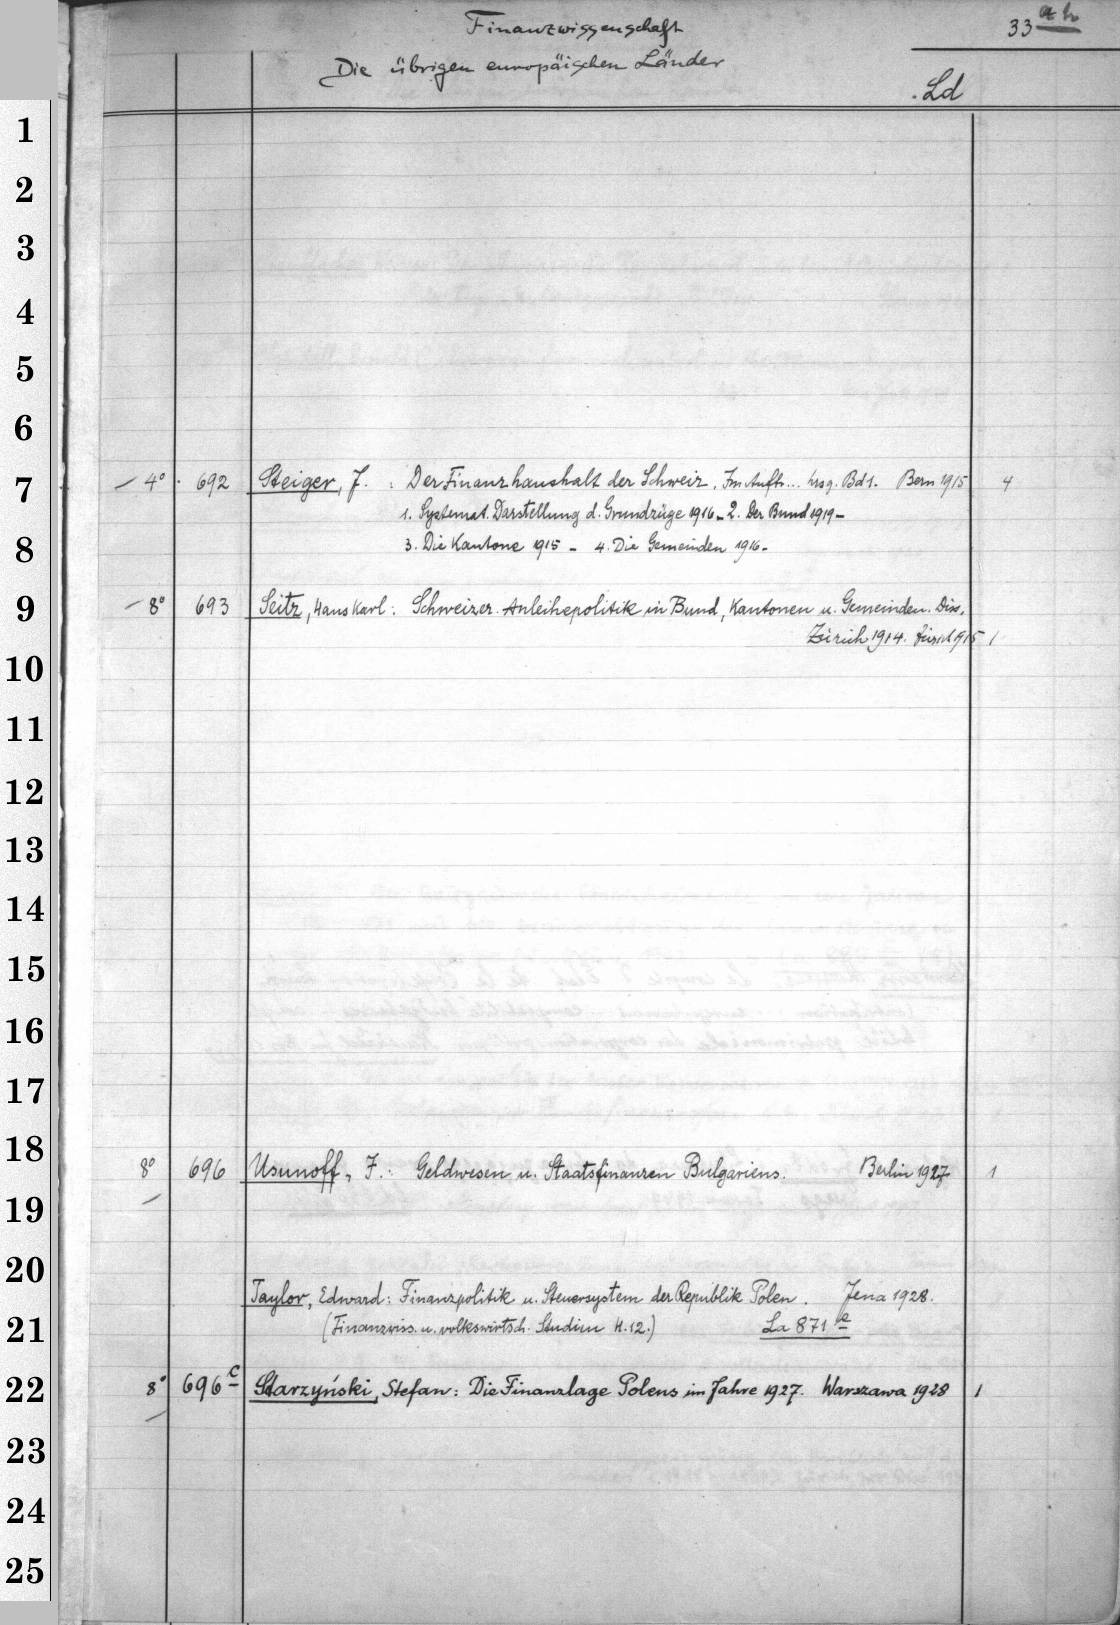 Finanzwissenschaft 33 a b
Die übrigen europäischen Länder
Ld
1
2
3
4
5
6
7 4° 692 Steiger, J. : Der Finanzhaushalt der Schweiz. Im Auftr... hrsg. Bd 1. Bern 1915 4
1. Systemat. Darstellung d. Grundzüge 1916 - 2. Der Bund 1919 -
8 3. Die Kantone 1915 - 4. Die Gemeinden 1916 -
9 8° 693 Seitz, Hans Karl: Schweizer. Anleihepolitik in Bund, Kantonen u. Gemeinden. Diss.
Zürich 1914. Zürich 1915 1
10
11
12
13
14
15
16
17
18 8° 696 Usunoff, J.: Geldwesen u. Staatsfinanzen Bulgariens. Berlin 1927 1
19
20
Taylor, Edward: Finanzpolitik u. Steuersystem der Republik Polen. Jena 1928.
21 (Finanzwiss. u. volkswirtsch. Studien H. 12.) La 871 e
22 8° 696 c Starzyński, Stefan: Die Finanzlage Polens im Jahre 1927. Warszawa 1928 1
23
24
25